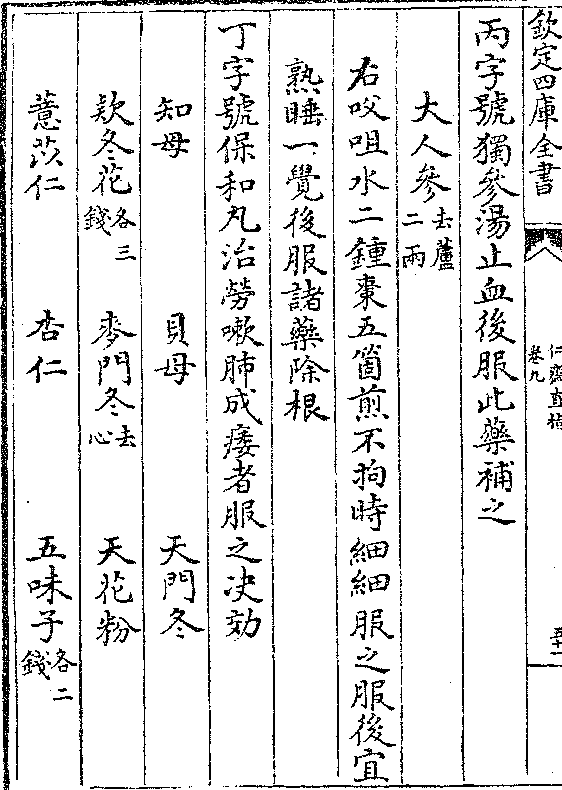 欽定四庫全書
仁齋直指
卷九
五十一
丙字號獨參湯止血後服此藥補之
大人參去蘆二兩
右㕮咀水二鍾棗五箇煎不拘時細細服之服後宜
熟睡一覺後服諸藥除根
丁字號保和丸治勞嗽肺成痿者服之决効
知母 貝母 天門冬
欵冬花各三錢 麥門冬去心 天花粉
薏苡仁 杏仁 五味子各二錢